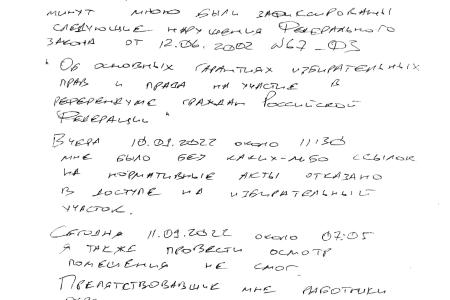 минут мною были зафиксированы
следующие нарушения Федерального
закона от 12.06.2002 №67-ФЗ
"Об основных гарантиях избирательных
прав и права на участие в
референдуме граждан Российской
Федерации"
Вчера 10.09.2022 около 11:30
мне было без каких-либо ссылок
на нормативные акты отказано
в доступе на избирательный
участок.
Сегодня 11.09.2022 около 07:05
я также провести осмотр
помещения не смог.
Препятствовавшие мне работники